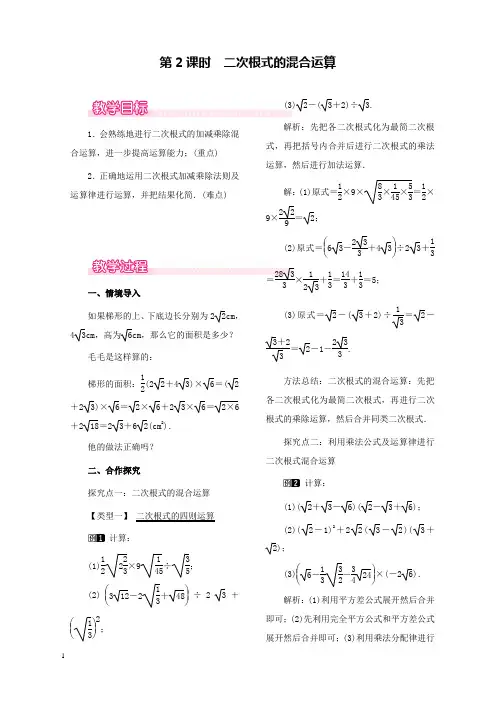 第2课时　二次根式的混合运算
教学目标
1．会熟练地进行二次根式的加减乘除混
合运算，进一步提高运算能力；(重点)
2．正确地运用二次根式加减乘除法则及
运算律进行运算，并把结果化简．(难点)
教学过程
一、情境导入
如果梯形的上、下底边长分别为2√2cm，
4√3cm，高为√6cm，那么它的面积是多少？
毛毛是这样算的：
梯形的面积：1/2(2√2＋4√3)×√6＝(√2
＋2√3)×√6＝√2×√6＋2√3×√6＝√(2×6)
＋2√18＝2√3＋6√2(cm²)．
他的做法正确吗？
二、合作探究
探究点一：二次根式的混合运算
【类型一】 二次根式的四则运算
例1 计算：
(1)1/2√(2 2/3)×9√(1/45)÷√(3/5)；
(2)(3√12－2√(1/3)＋√48)÷2√3＋
(√(1/3))²；
(3)√2－(√3＋2)÷√3.
解析：先把各二次根式化为最简二次根
式，再把括号内合并后进行二次根式的乘法
运算，然后进行加法运算．
解：(1)原式＝1/2×9×√(8/3×1/45×5/3)＝1/2×
9×2√2/9＝√2；
(2)原式＝(6√3－2√3/3＋4√3)÷2√3＋1/3
＝28√3/3×1/(2√3)＋1/3＝14/3＋1/3＝5；
(3)原式＝√2－(√3＋2)÷1/√3＝√2－
(√3＋2)/√3＝√2－1－2√3/3.
方法总结：二次根式的混合运算：先把
各二次根式化为最简二次根式，再进行二次
根式的乘除运算，然后合并同类二次根式．
探究点二：利用乘法公式及运算律进行
二次根式混合运算
例2 计算：
(1)(√2＋√3－√6)(√2－√3＋√6)；
(2)(√2－1)²＋2√2(√3－√2)(√3＋
√2)；
(3)(√6－1/3√(3/2)－3/4√24)×(－2√6)．
解析：(1)利用平方差公式展开然后合并
即可；(2)先利用完全平方公式和平方差公式
展开然后合并即可；(3)利用乘法分配律进行
1